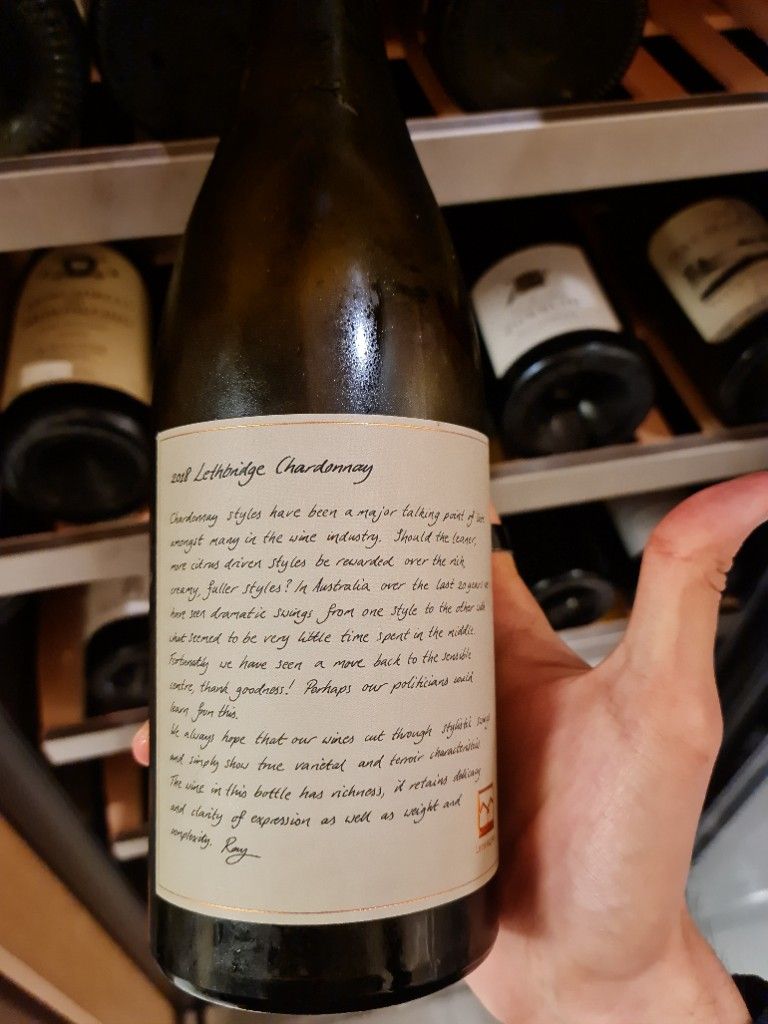 2018 Lethbridge Chardonnay
Chardonnay styles have been a major talking point of late
amongst many in the wine industry. Should the leaner,
more citrus driven styles be rewarded over the rich
creamy, fuller styles? In Australia over the last 20 years we
have seen dramatic swings from one style to the other with
what seemed to be very little time spent in the middle.
Fortunately we have seen a move back to the sensible
centre, thank goodness! Perhaps our politicians could
learn from this.
We always hope that our wines cut through stylistic
and simply show true varietal and terroir characteristics
The wine in this bottle has richness, it retains delicacy
and clarity of expression as well as weight and
complexity. Ray